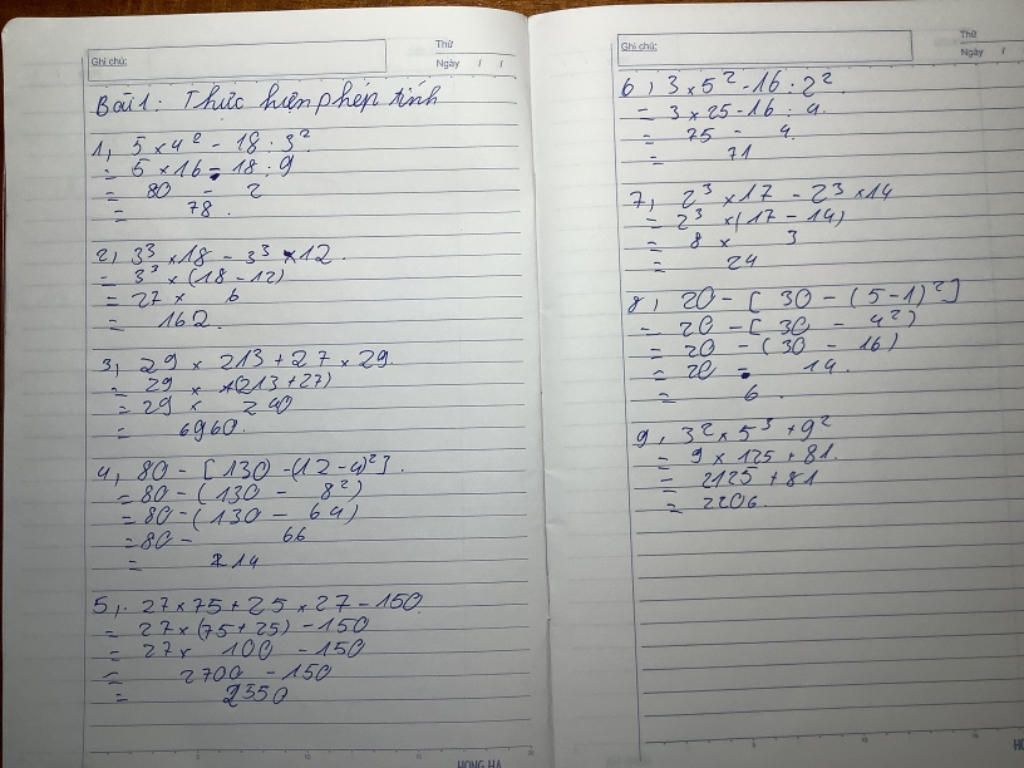 Ghi chú:
Thứ
Ngày / /
Bài 1: Thực hiện phép tính
1, 5 × 4² - 18 : 3²
= 5 × 16 - 18 : 9
= 80 - 2
= 78.
2, 3³ × 18 - 3³ × 12.
= 3³ × (18 - 12)
= 27 × 6
= 162.
3, 29 × 213 + 27 × 29.
= 29 × (213 + 27)
= 29 × 240
= 6960.
4, 80 - [130 - (12 - 4)²].
= 80 - (130 - 8²)
= 80 - (130 - 64)
= 80 - 66
= 14
5, 27 × 75 + 25 × 27 - 150.
= 27 × (75 + 25) - 150
= 27 × 100 - 150
= 2700 - 150
= 2350
HONG HA
Ghi chú:
Thứ
Ngày /
6, 3 × 5² - 16 : 2².
= 3 × 25 - 16 : 4.
= 75 - 4.
= 71
7, 2³ × 17 - 2³ × 14
= 2³ × (17 - 14)
= 8 × 3
= 24
8, 20 - [30 - (5 - 1)²]
= 20 - (30 - 4²)
= 20 - (30 - 16)
= 20 - 14.
= 6.
9, 3² × 5³ + 9²
= 9 × 125 + 81.
= 2125 + 81
= 2206.